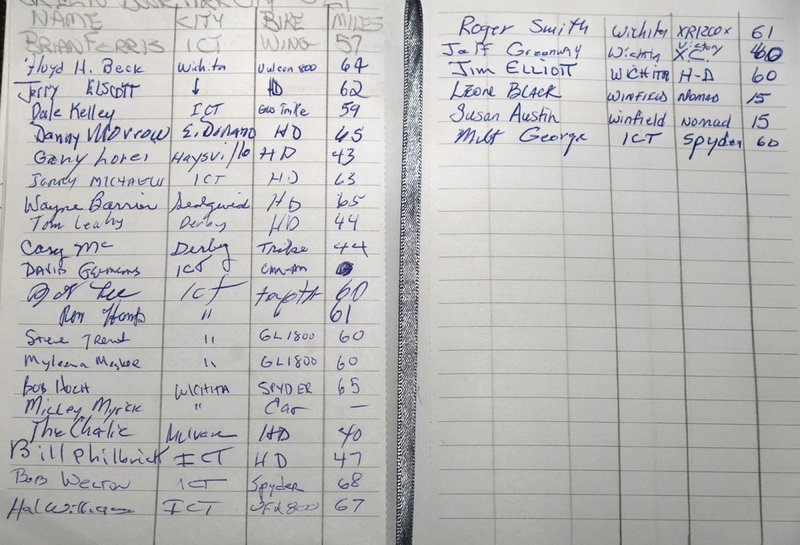 NAME CITY BIKE MILES
BRIAN FERRIS ICT WING 57
Floyd H. Beck Wichita Vulcan 800 64
Jerry ELSCOTT ↓ HD 62
Dale Kelley ICT Trike 59
Danny Morrow ElDorado HD 45
Gary Haysville HD 43
MICHAELS ICT HD 63
Wayne Barrier Sedgwick HD 65
Tom Leahy Derby HD 44
Casey Mc Derby Trike 44
DAVID ICT can-am
Lee ICT 60
Ron " 61
Steve Trent " GL1800 60
Myleena " GL1800 60
BOB HOCH WICHITA SPYDER 65
Mickey Myrick " Car —
The Charlie Mulvane HD 40
Bill Philbrick ICT HD 47
BOB WELTON ICT Spyder 68
Hal Williams ICT 67
Roger Smith Wichita XR1200x 61
Jeff Greenway Wichita Victory X.C. 60
Jim ELLIOTT WICHITA H-D 60
Leone BLACK WINFIELD NOMAD 15
Susan Austin Winfield Nomad 15
Milt George ICT Spyder 60